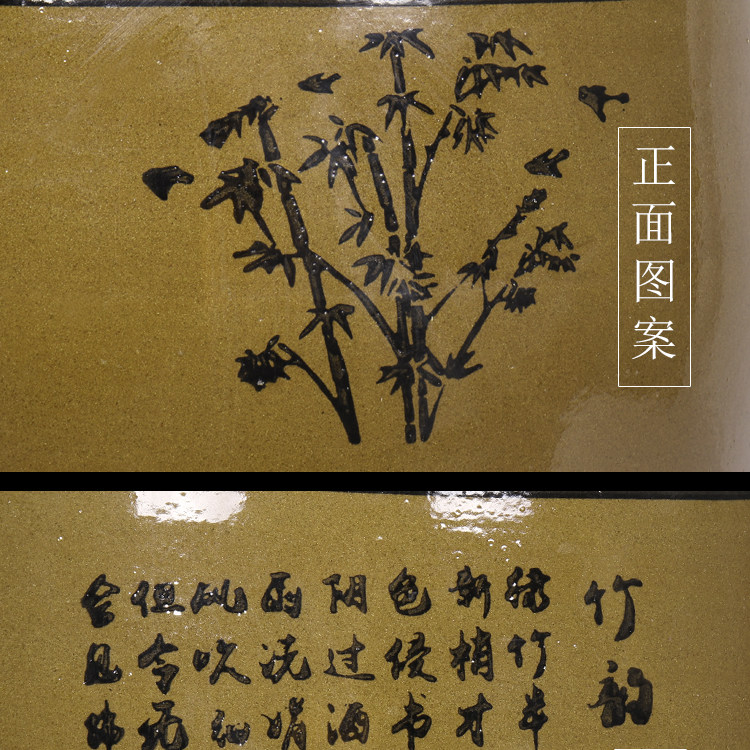 正面图案
竹韵
绿竹半
新梢才
色侵书
阴过酒
雨洗娟
风吹细
但令无
会见拂